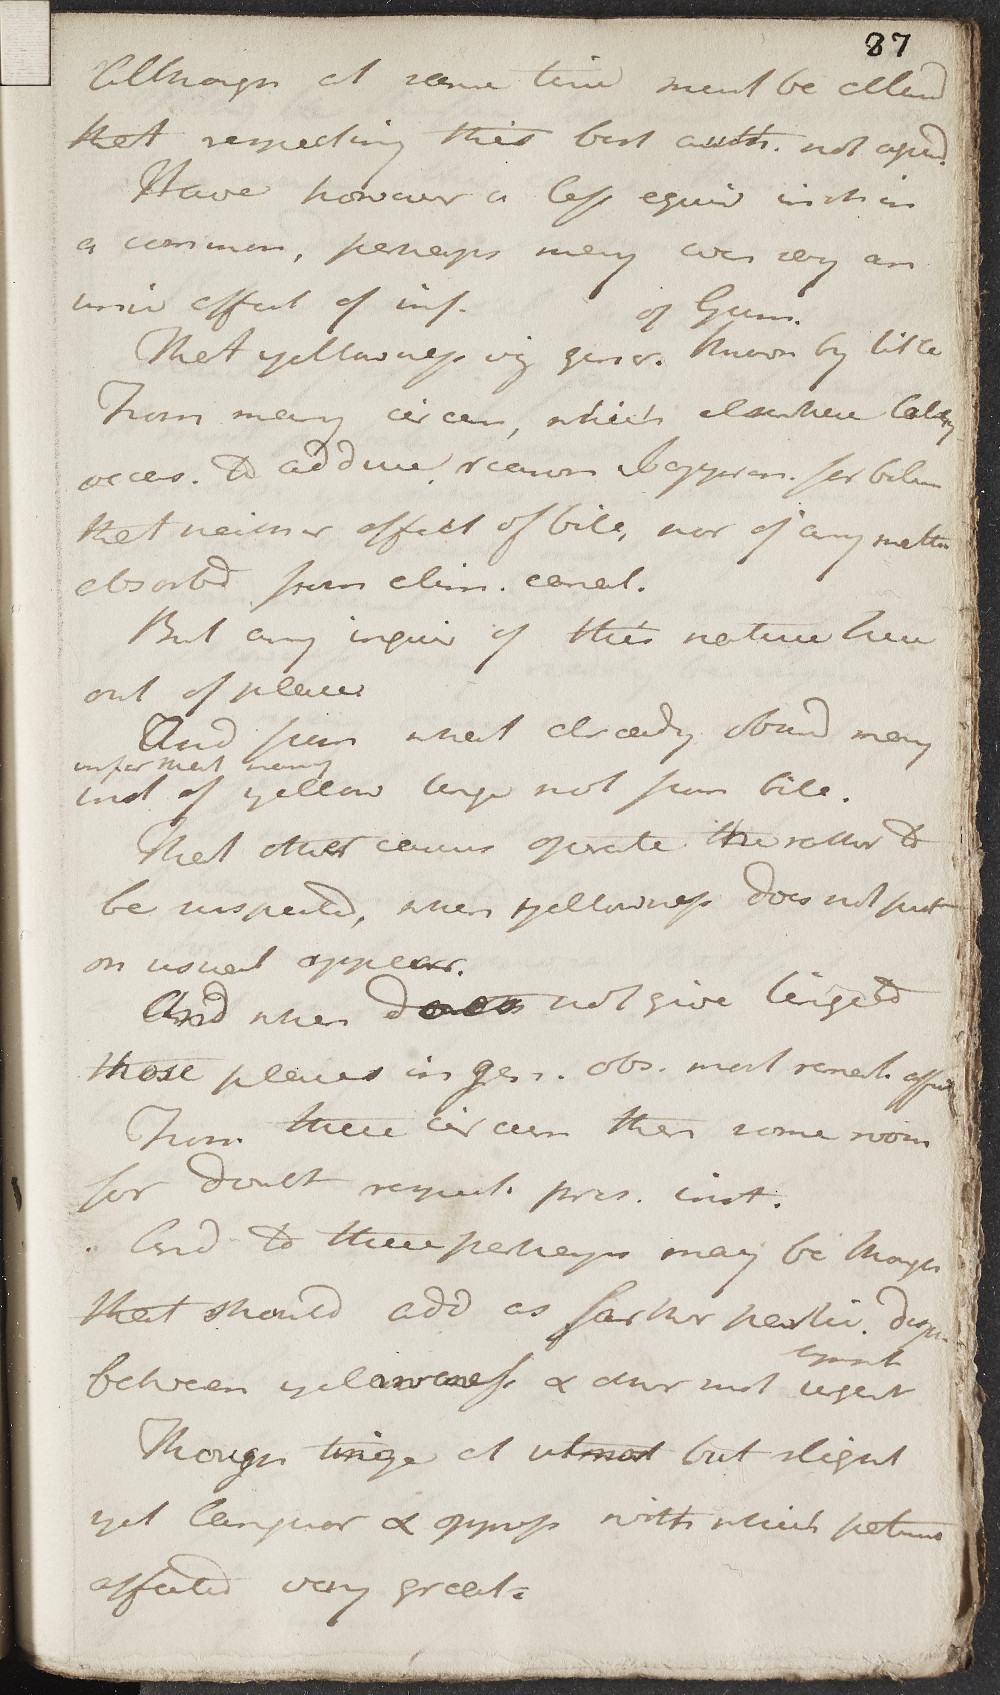 87
Although at same time must be allowd
that respecting this best auth. not agreed.
Have however a less equiv instan
a common, perhaps may even say an
univ effect of inf.
of Gum.
That yellowness viz gener. known by title
From many circum, which elsewhere
occas. to adduce, reason I apprehen. for
that neither effect of bile, nor of any matter
absorbd from alim. canal.
But any inquir of this nature here
out of place
And from what already obsend may
infer that many
inst of yellow tinge not from bile.
That other causes operate the rather to
be suspected, when yellowness does not put
on usual appear.
And when does not give tinge to
those places in gen. obs. most remark affec
From these circum then some room
for doubt respect. pres. inst.
And to these perhaps may be though
that should add as farther partic. disprop
between yellowness &
urgent
Though tinge at utmost but slight
yet languor & oppress with which patient
affected very great.